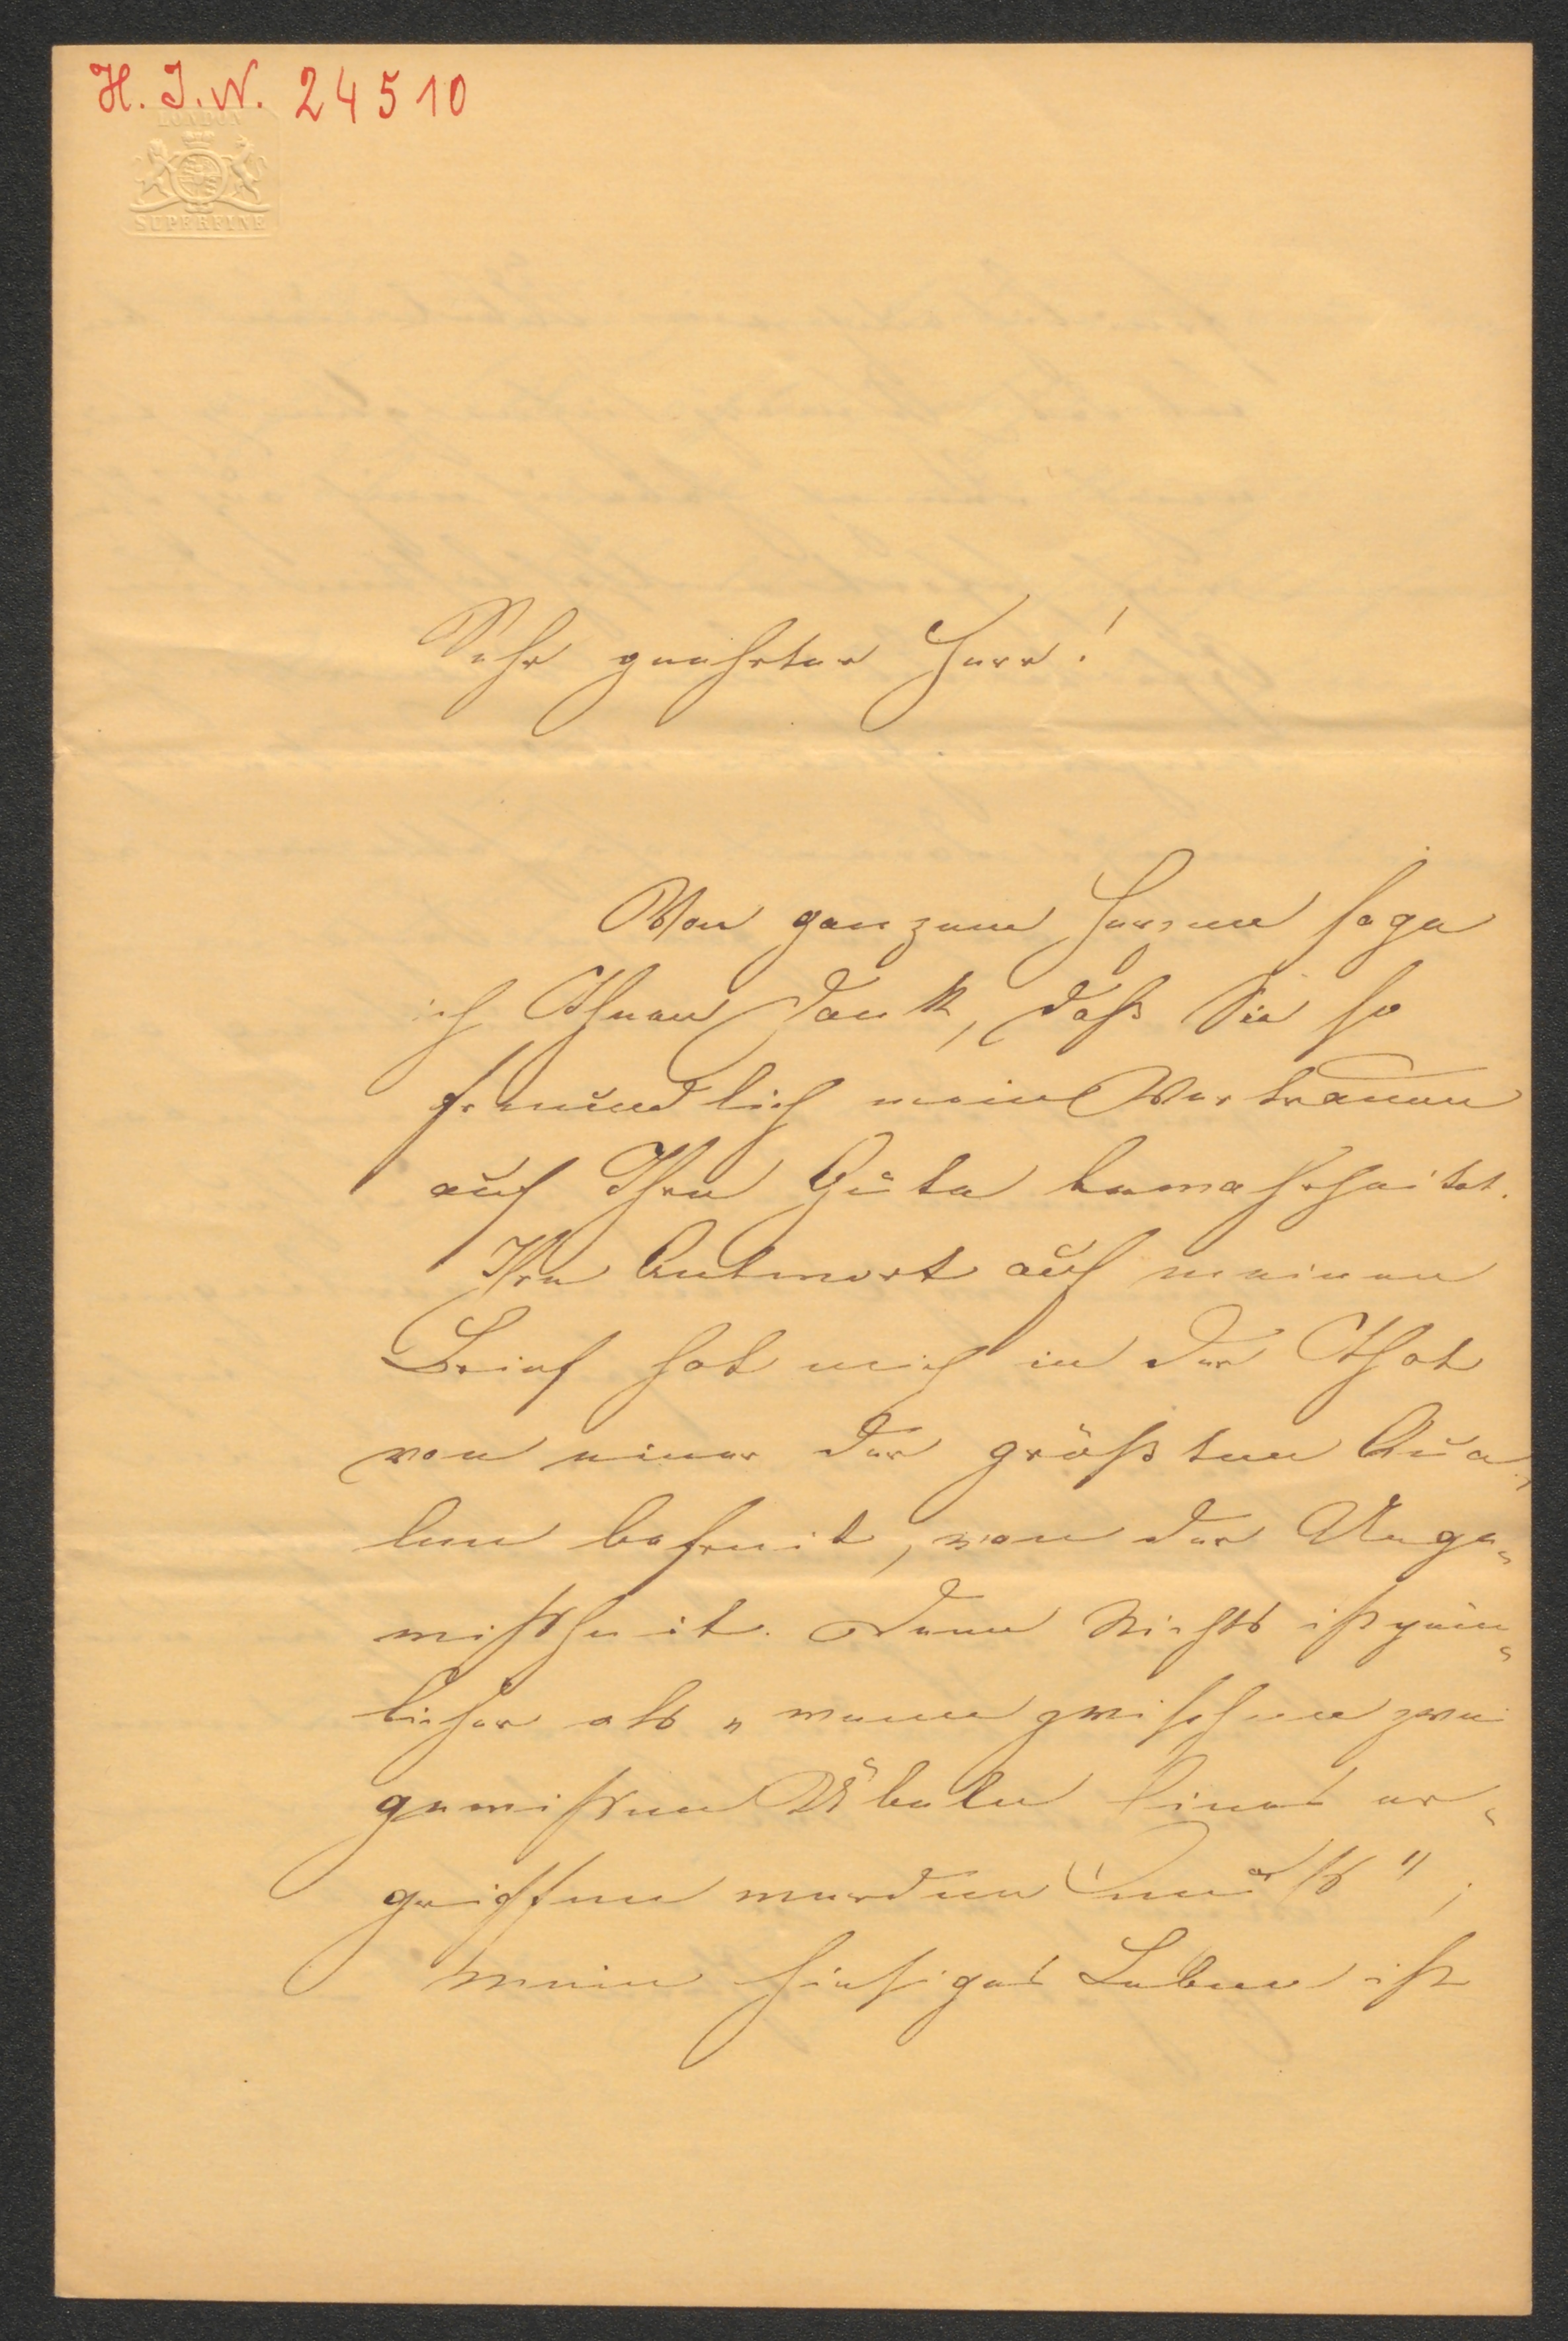 H. I. N. 24510
LONDON
SUPERFINE
Sehr geehrter Herr!
Von ganzem Herzen sage
ich Ihnen Dank, daß Sie so
freundlich mein Vertrauen
auf Ihre Güte bewahrheitet.
Ihre Antwort auf meinen
Brief hat mich in der That
von einer der größten Qua-
len befreit, von der Unge-
wißheit. Denn Nichts ist pein-
licher als „wenn zwischen zwei
gewissen Übeln Eines er-
griffen werden muß";
mein hiesiges Leben ist